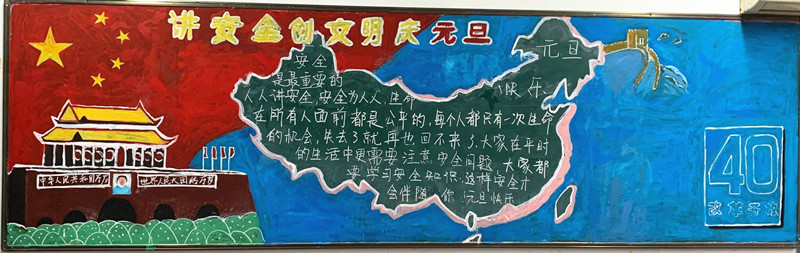 讲安全创文明庆元旦
安全
是最重要的
人人讲安全,安全为人人,生命
在所有人面前都是公平的,每个人都只有一次生命
的机会,失去了就再也回不来了,大家在平时
的生活中更需要注意安全问题,大家都
要学习安全知识,这样安全才
会伴随你 元旦快乐
元旦
快乐
中华人民共和国万岁
世界人民大团结万岁
40
改革开放